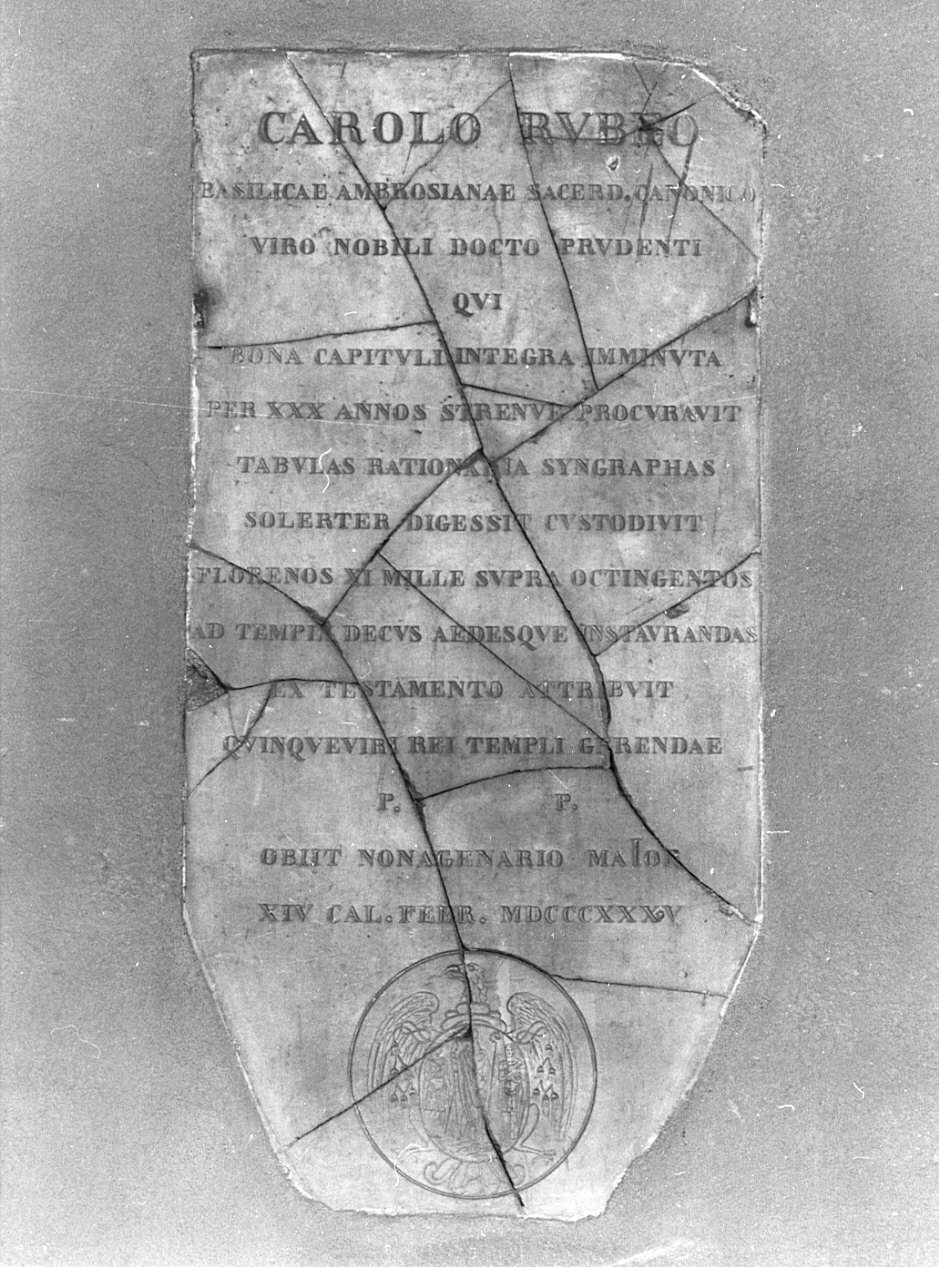 CAROLO RVBEO
BASILICAE AMBROSIANAE SACERD. CANONICO
VIRO NOBILI DOCTO PRVDENTI
QVI
BONA CAPITVLI INTEGRA IMMINVTA
PER XXX ANNOS STRENVE PROCVRAVIT
TABVLAS RATIONARIA SYNGRAPHAS
SOLERTER DIGESSIT CVSTODIVIT
FLORENOS XI MILLE SVPRA OCTINGENTOS
AD TEMPLI DECVS AEDESQVE INSTAVRANDAS
EX TESTAMENTO ATTRIBVIT
QVINQVEVIRI REI TEMPLI GERENDAE
P. P.
OBIIT NONAGENARIO MAIOR
XIV CAL. FEBR. MDCCCXXXV